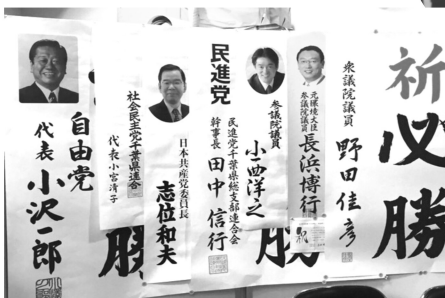 祈
必勝
衆議院議員
野田佳彦
元環境大臣
参議院議員
長浜博行
参議院議員
小西洋之
勝
民進党
民進党千葉県総支部連合会
幹事長
田中信行
日本共産党委員長
志位和夫
社会民主党千葉県連合
代表 小宮清子
勝
自由党
代表
小沢一郎